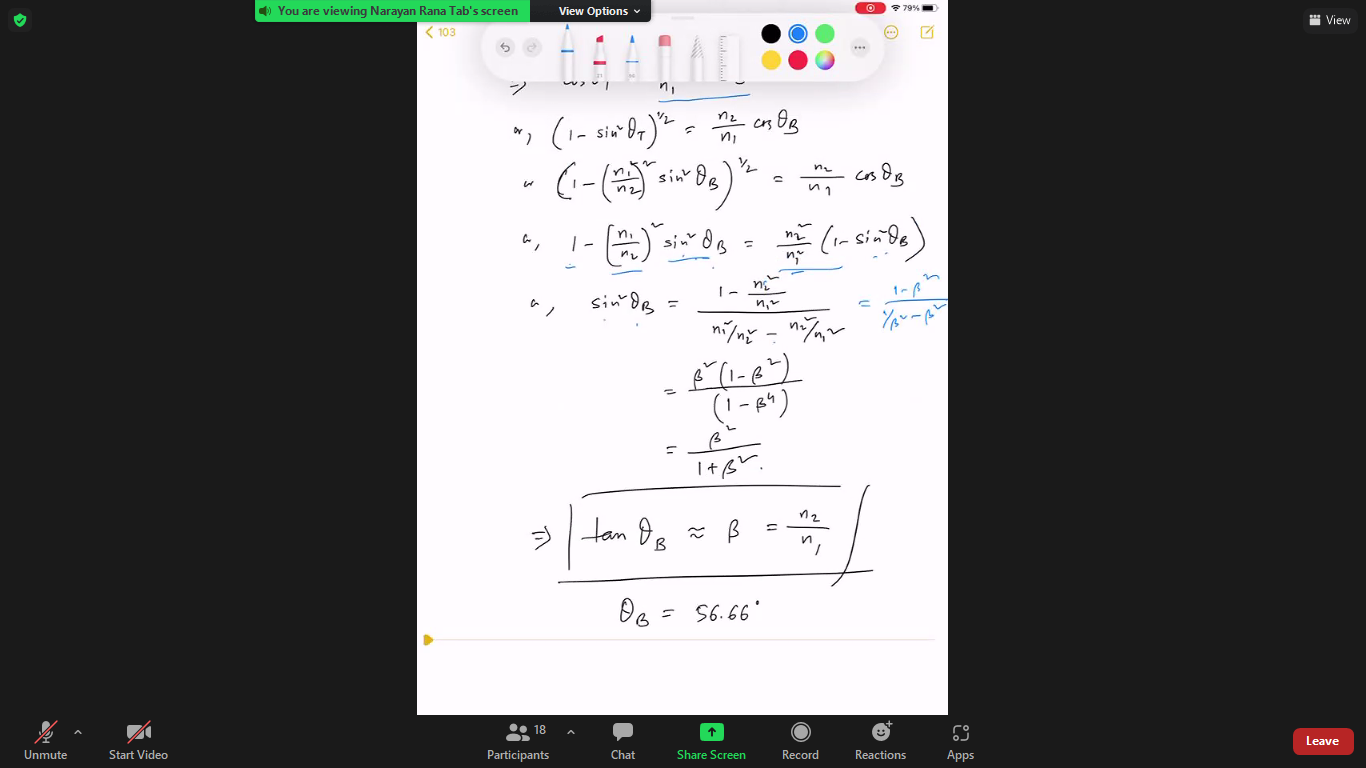 You are viewing Narayan Rana Tab's screen
View Options
View
79%
103
⇒ cosθ n₁
or, (1 - sin²θ_T)^1/2 = n₂/n₁ cosθ_B
or (1 - (n₁/n₂)² sin²θ_B)^1/2 = n₂/n₁ cosθ_B
or, 1 - (n₁/n₂)² sin²θ_B = n₂²/n₁² (1 - sin²θ_B)
or, sin²θ_B = (1 - n₂²/n₁²)/(n₁²/n₂² - n₂²/n₁²) = (1-β²)/(1/β² - β²)
= β²(1-β²)/(1-β⁴)
= β²/(1+β²).
⇒ tan θ_B ≈ β = n₂/n₁
θ_B = 56.66°
Unmute
Start Video
Participants
18
Chat
Share Screen
Record
Reactions
Apps
Leave